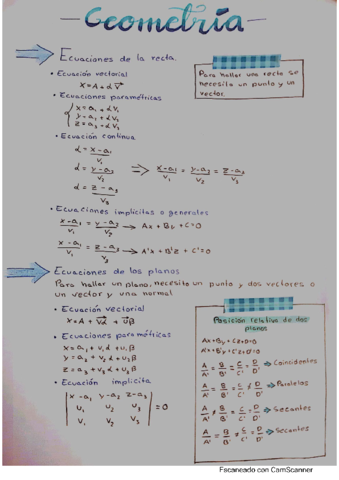 Geometría
Ecuaciones de la recta.
• Ecuación vectorial
X = A + α V⃗
Para hallar una recta se
necesita un punto y un
vector.
• Ecuaciones paramétricas
x = a₁ + α V₁
y = a₂ + α V₂
z = a₃ + α V₃
• Ecuación continua
α = (x - a₁)/V₁
α = (y - a₂)/V₂ ⇒ (x - a₁)/V₁ = (y - a₂)/V₂ = (z - a₃)/V₃
α = (z - a₃)/V₃
• Ecuaciones implícitas o generales
(x - a₁)/V₁ = (y - a₂)/V₂ → Ax + By + C = 0
(x - a₁)/V₁ = (z - a₃)/V₃ → A'x + B'z + C' = 0
Ecuaciones de los planos
Para hallar un plano, necesito un punto y dos vectores o
un vector y una normal
• Ecuación vectorial
• Ecuaciones paramétricas
x = a₁ + v₁ α + u₁ β
y = a₂ + v₂ α + u₂ β
z = a₃ + v₃ α + u₃ β
• Ecuación implícita
| x - a₁ y - a₂ z - a₃ |
| u₁ u₂ u₃ | = 0
| V₁ V₂ V₃ |
Posición relativa de dos
planos
Ax + By + Cz + D = 0
A'x + B'y + C'z + D' = 0
A/A' = B/B' = C/C' = D/D' → Coincidentes
A/A' = B/B' = C/C' ≠ D/D' → Paralelos
→ Secantes
A/A' = B/B' ≠ C/C' = D/D' → Secantes
Escaneado con CamScanner